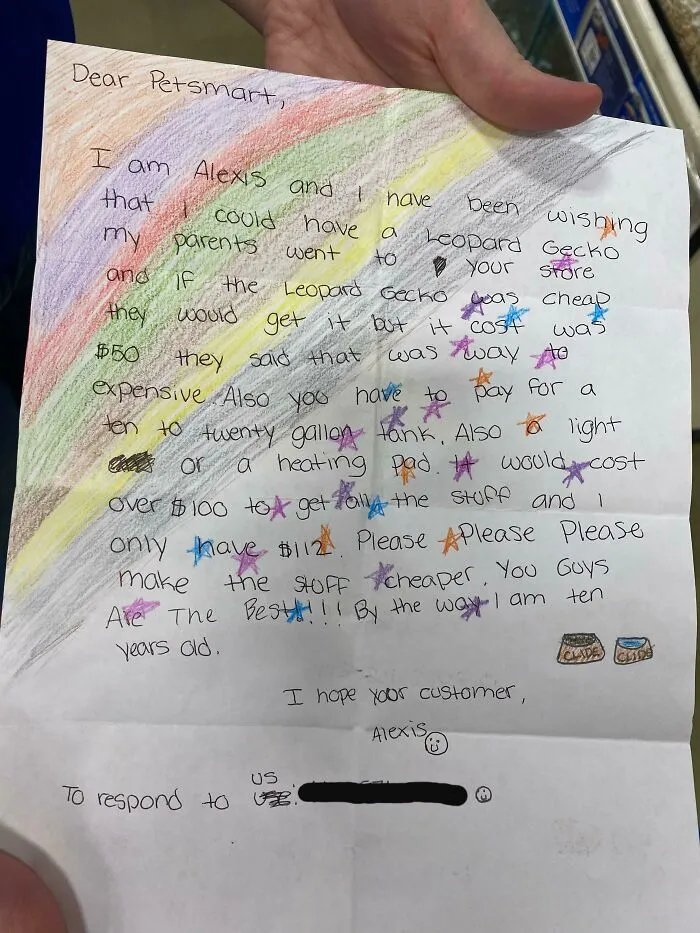 Dear Petsmart,
I am Alexis and I have been wishing
that I could have a Leopard Gecko
my parents went to your store
and if the Leopard Gecko was cheap
they would get it but it cost was
$50 they said that was way to
expensive. Also you have to pay for a
ten to twenty gallon tank. Also a light
or a heating pad. It would cost
over $100 to get all the stuff and I
only have $112. Please Please Please
make the stuff cheaper. You Guys
Are The Best!!!! By the way I am ten
years old.
CLYDE CLYDE
I hope your customer,
Alexis
US
To respond to :